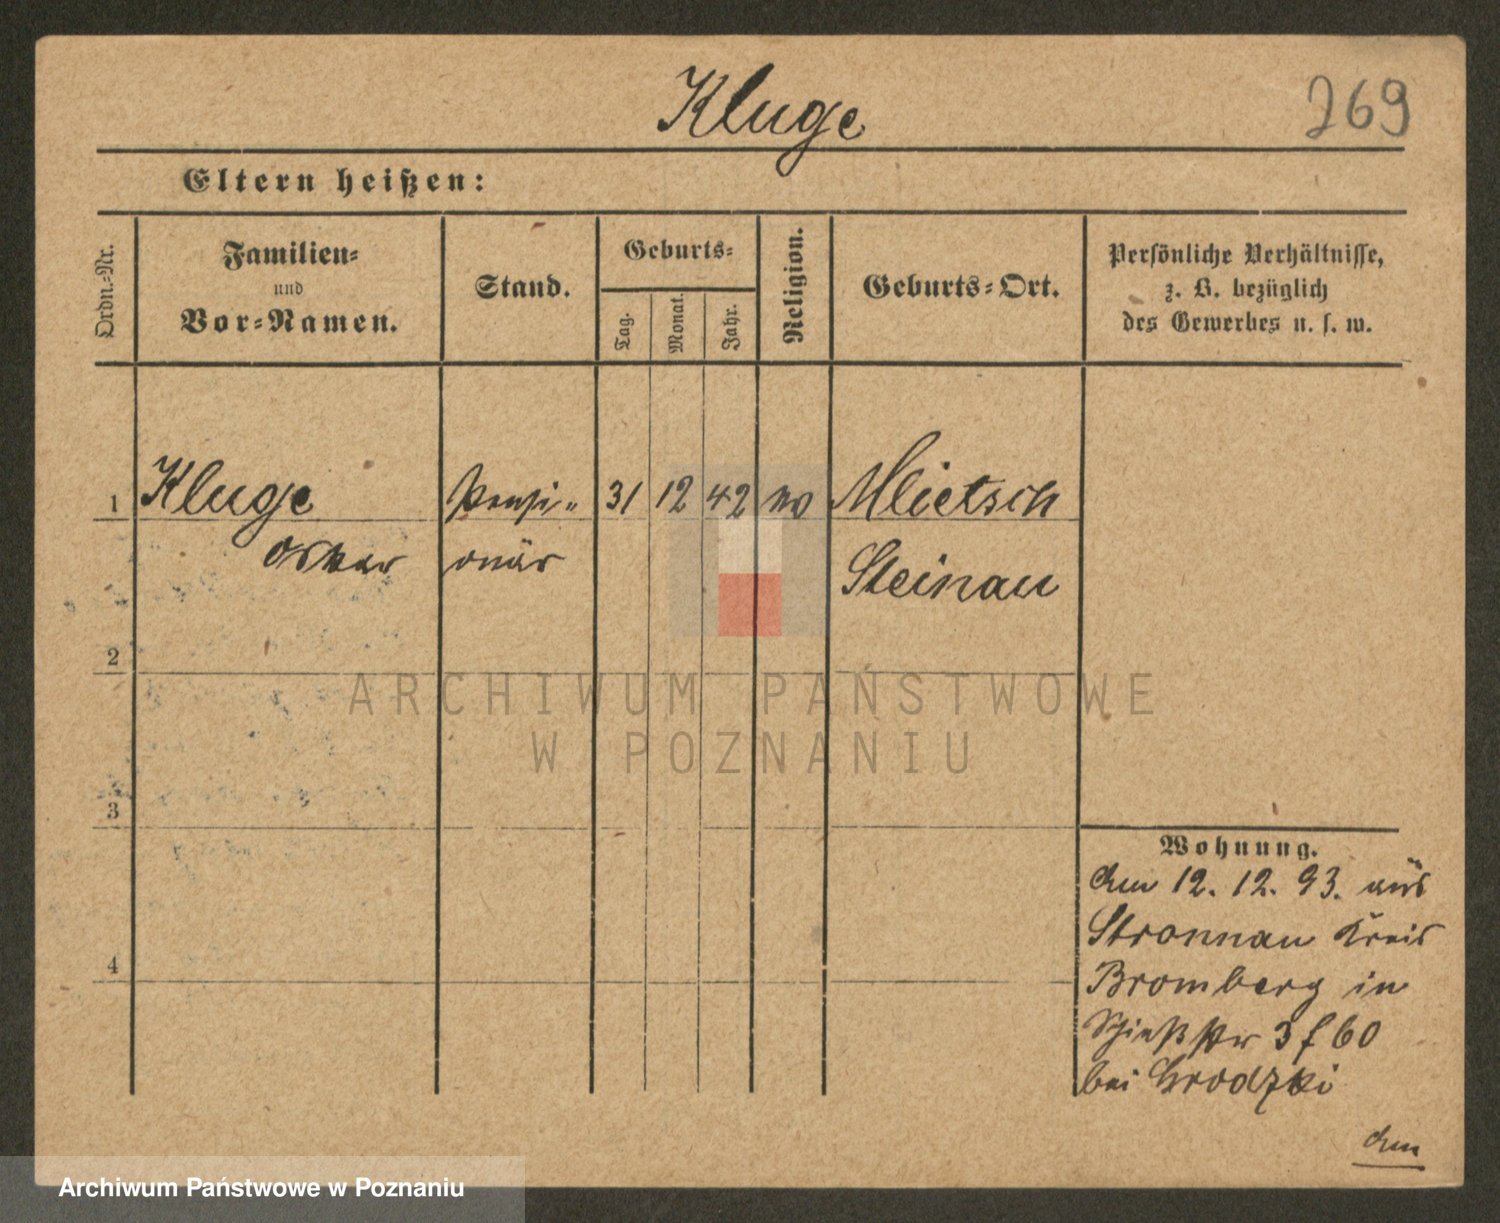 Kluge
269
Eltern heißen:
Ordn.=Nr.
Familien=
und
Vor=Namen.
Stand.
Geburts=
Tag.
Monat.
Jahr.
Religion.
Geburts=Ort.
Persönliche Verhältnisse,
z. B. bezüglich
des Gewerbes u. s. w.
1 Kluge Pensi= 31 12 42 Mlietsch
Oskar onär Steinau
2
3
4
ARCHIWUM PAŃSTWOWE
W POZNANIU
Wohnung.
12. 12. 93. aus
Stronnau Kreis
Bromberg in
Schießstr 3 f 60
bei Grodzki
Archiwum Państwowe w Poznaniu